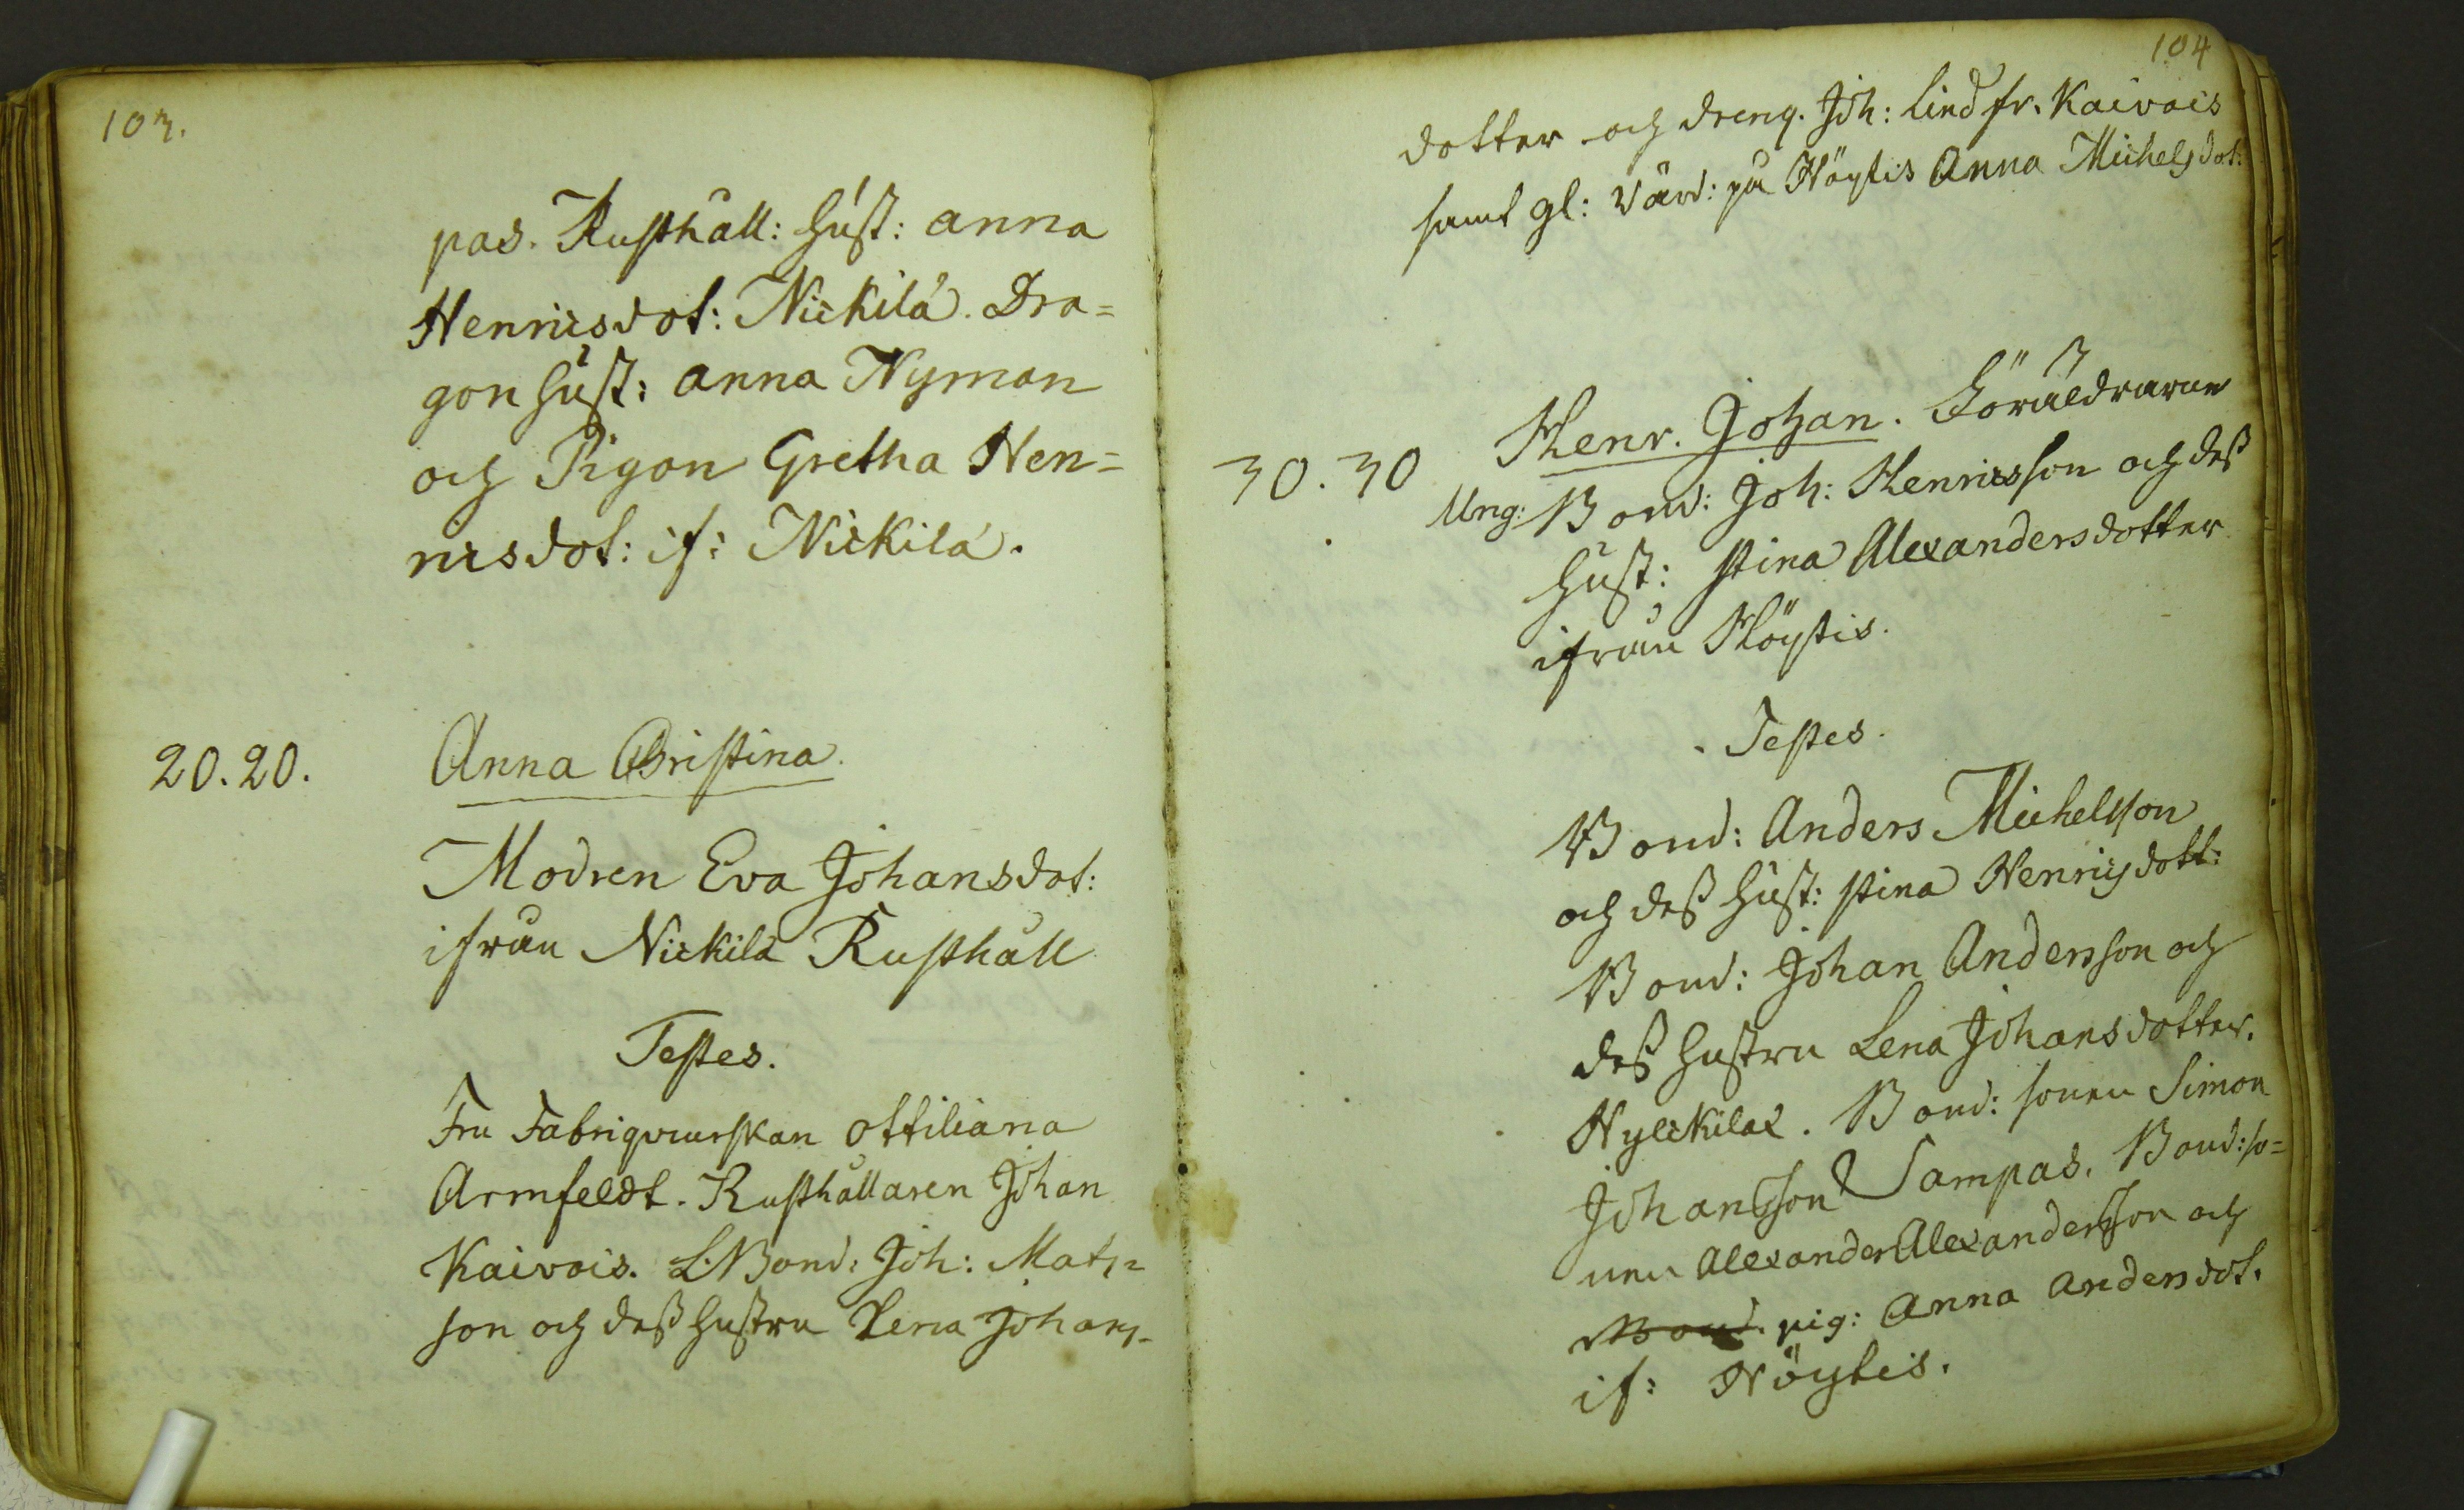 103.
pas. Rusthåll: Hust: anna
Henricsdot: Nickilä. Dra=
gon hust: anna Nyman
och Pigan Gretha Hen=
ricsdot: if: Nickilä.
20.20. Anna Christina.
Modren Eva Johansdot:
ifrån Nickilä Rusthåll
Testes.
Fru Fabriqveurskan Ottiliana
Armfeldt. Rusthållaren Johan
Kaivois. L:Bond: Joh: Mats=
son och dess hustru Lena Johans-
104
dotter och dreng. Joh: Lind fr. Kaivois
samt gl: värd: på Höytis Anna Michelsdot:
30.30 Henr. Johan. Föräldrarne
Ung: Bond: Joh: Henricsson och dess
hust: Stina Alexandersdotter
ifrån Höytis.
Testes.
Bond: Anders Michelsson
och dess hust: Stina Henricsdott:
Bond: Johan Andersson och
dess hustru Lena Johansdotter.
Bond: sonen Simon
Johansson Sampas. Bond: so=
nen Alexander Alexandersson och
Bond. pig: Anna andersdot.
if: Höytis.